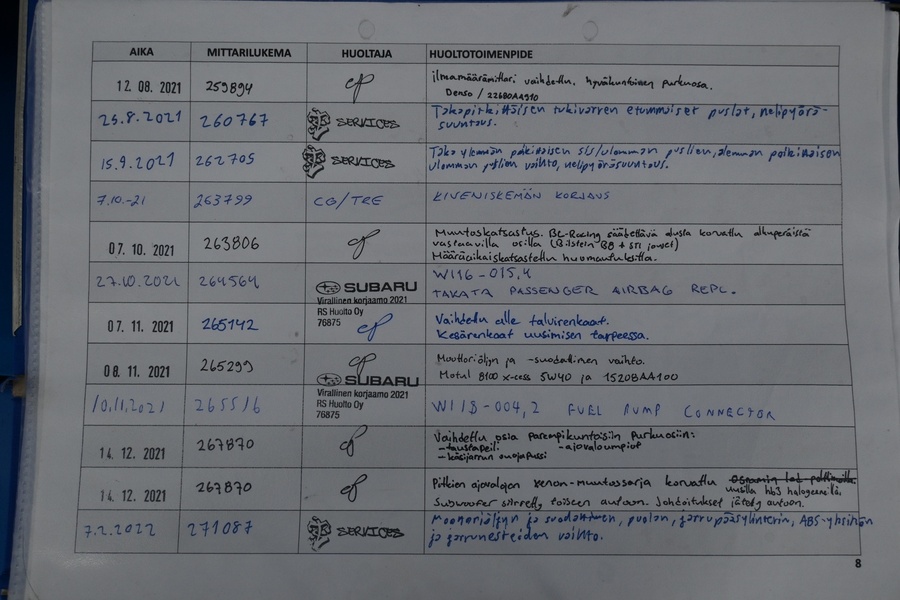 AIKA MITTARILUKEMA HUOLTAJA HUOLTOTOIMENPIDE
12 08. 2021 259894 ilmamäärämittari vaihdettu. hyväkuntoinen purkuosa.
Denso / 22680AA310
25.8.2021 260767 SERVICES Takapitkittäisen tukivarren etummaiset puslat, nelipyörä-
suuntaus.
15.9.2021 262705 SERVICES Taka ylemmän poikittaisen sis/ulomman puslien, alemman poikittaisen
ulomman puslien vaihto, nelipyöräsuuntaus.
7.10.-21 263799 CG/TRE KIVENISKEMÄN KORJAUS
07. 10. 2021 263806 Muutoskatsastus. BC-Racing säädettävä alusta korvattu alkuperäistä
vastaavilla osilla (Bilstein B8 + STI jouset)
Määräaikaiskatsastettu huomautuksitta.
27.10.2021 264564 SUBARU W116-015,4
Virallinen korjaamo 2021
RS Huolto Oy
76875
TAKATA PASSENGER AIRBAG REPL.
07. 11. 2021 265142 Vaihdettu alle talvirenkaat.
Kesärenkaat uusimisen tarpeessa.
08 11. 2021 265299 Moottoriöljyn ja -suodattimen vaihto.
Motul 8100 x-cess 5W40 ja 15208AA100
10.11.2021 265516 SUBARU W118-004,2 FUEL PUMP CONNECTOR
Virallinen korjaamo 2021
RS Huolto Oy
76875
14. 12. 2021 267870 Vaihdettu osia parempikuntoisiin purkuosiin:
-taustapeili -ajovaloumpiot
-käsijarrun suojapussi
14. 12. 2021 267870 Pitkien ajovalojen xenon-muutossarja korvattu
uusilla hb3 halogeeneilla.
Subwoofer siirretty toiseen autoon. Johdoitukset jätetty autoon.
7.2.2022 271087 SERVICES moottoriöljyn ja suodattimen, puolan, jarrupääsylinterin, ABS-yksikön
ja jarrunesteiden vaihto.
8